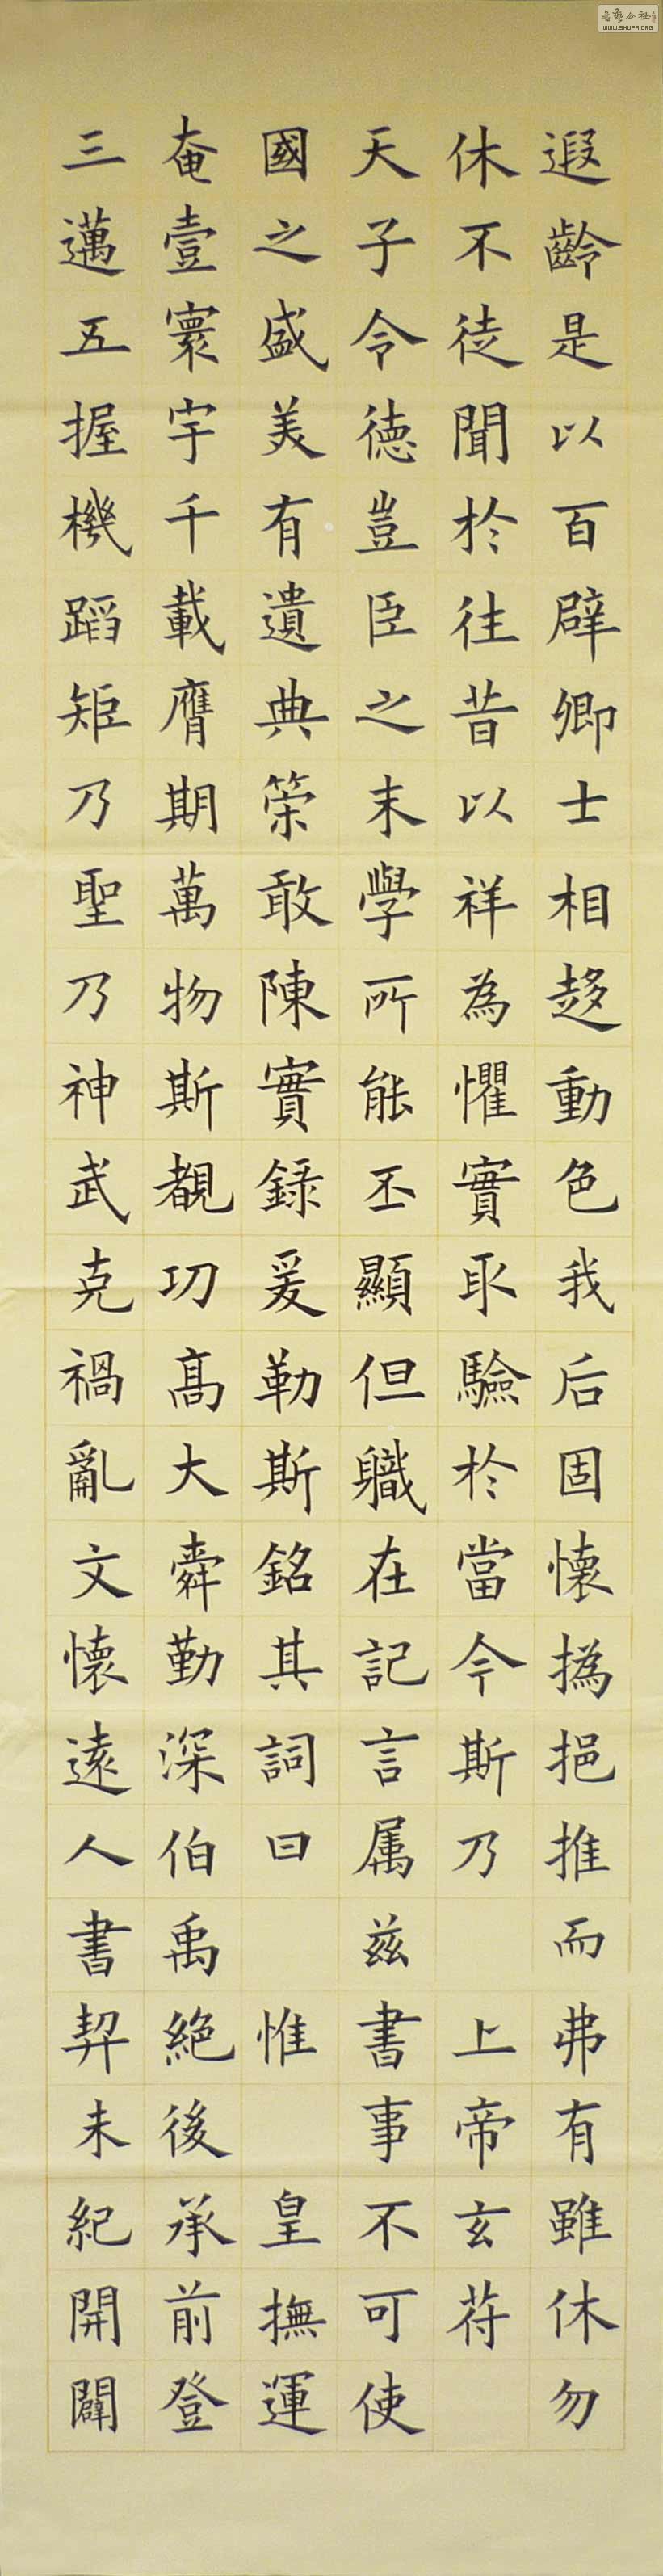 遐齡是以百辟卿士相趍動色我后固懷撝挹推而弗有雖休勿
休不徒聞於往昔以祥為懼實取驗於當今斯乃 上帝玄苻
天子令德豈臣之末學所能丕顯但職在記言属兹書事不可使
國之盛美有遺典策敢陳實錄爰勒斯銘其詞曰 惟 皇撫運
奄壹寰宇千載膺期萬物斯覩功高大舜勤深伯禹絕後承前登
三邁五握機蹈矩乃聖乃神武克禍亂文懷遠人書契未紀開闢
WWW.SHUFA.ORG